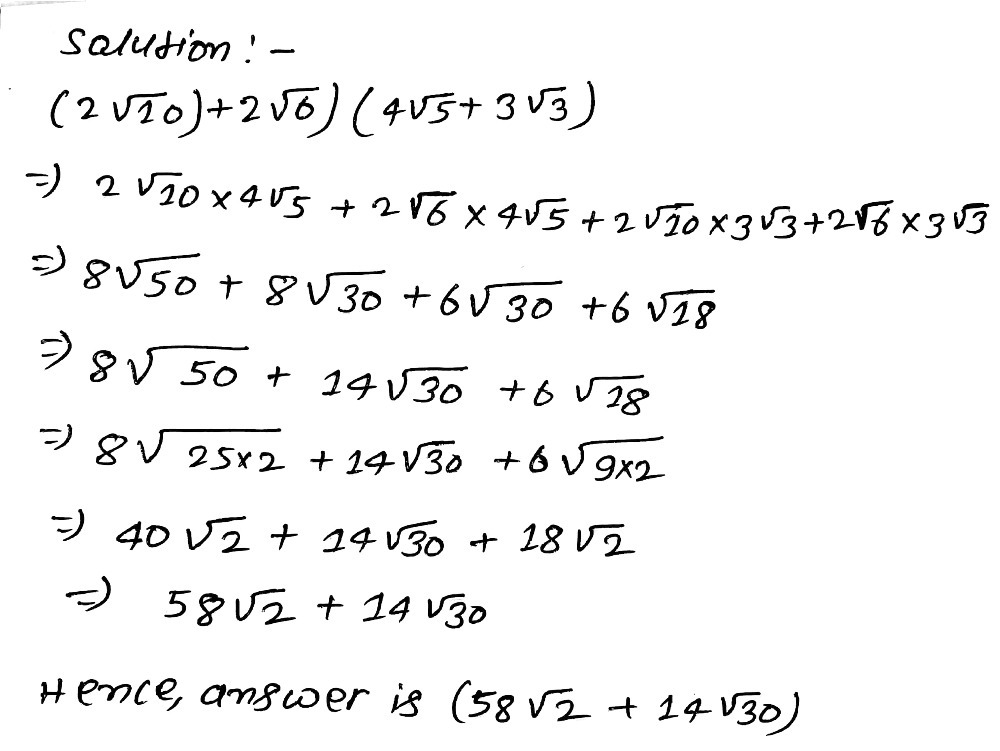 Solution:-
(2√10)+2√6)(4√5+3√3)
⇒ 2√10×4√5+2√6×4√5+2√10×3√3+2√6×3√3
⇒ 8√50+8√30+6√30+6√18
⇒ 8√50+14√30+6√18
⇒ 8√25×2+14√30+6√9×2
⇒ 40√2+14√30+18√2
⇒ 58√2+14√30
Hence, answer is (58√2+14√30)